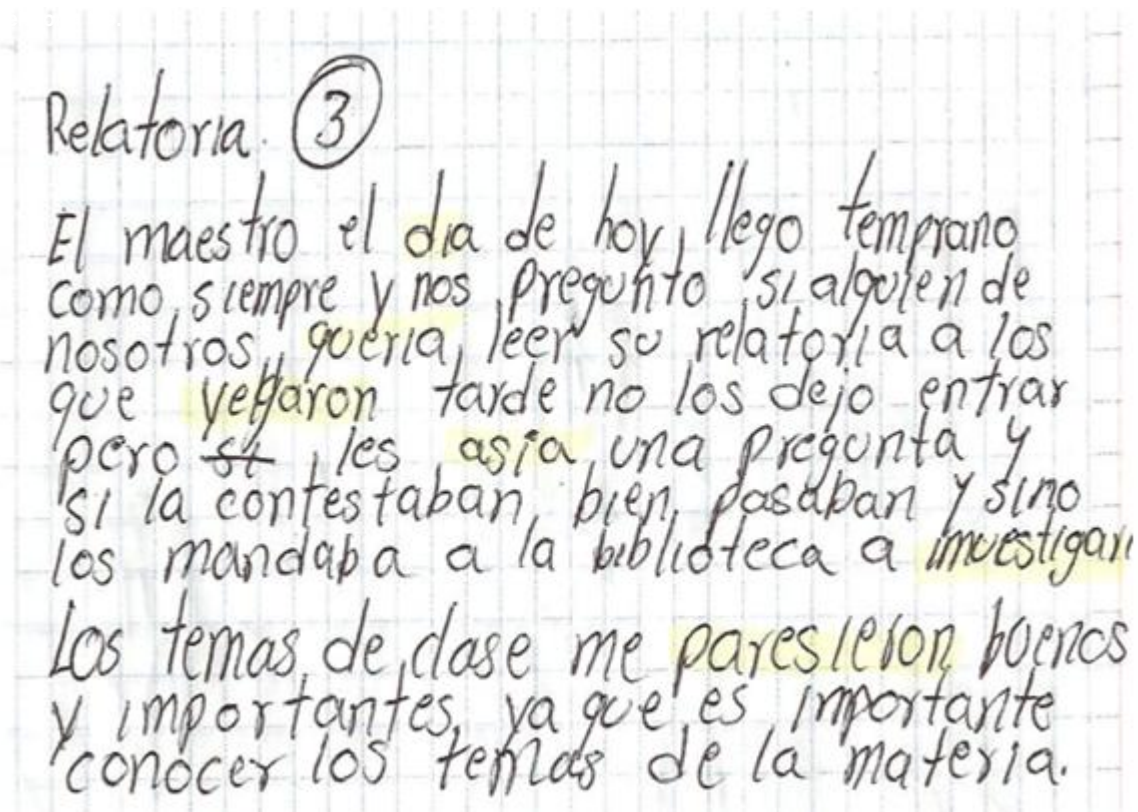 Relatoria. 3
El maestro el dia de hoy, llego temprano
como siempre y nos pregunto si alguien de
nosotros, queria, leer su relatoria a los
que yegaron tarde no los dejo entrar
pero si, les asia una pregunta y
si la contestaban bien pasaban y sino
los mandaba a la biblioteca a imvestigar
Los temas de clase me paresieron buenos
y importantes, ya que es importante
conocer los temas de la materia.